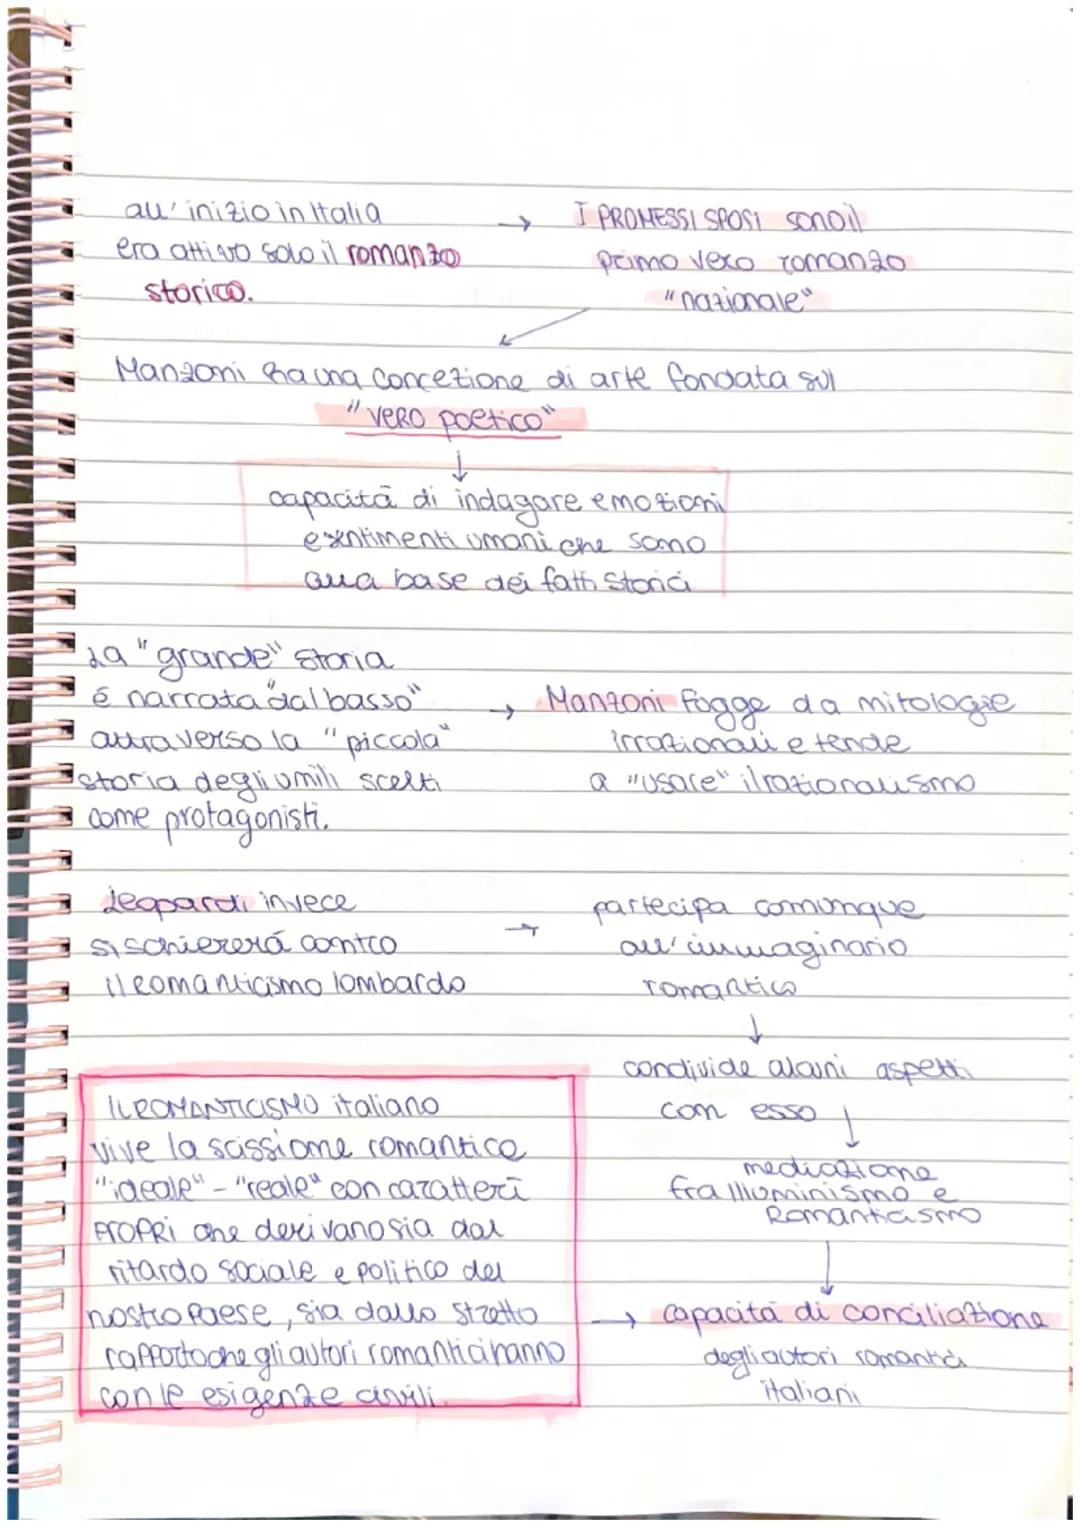 all' inizio in Italia
era attivo solo il romanzo
storico.
→ I PROMESSI SPOSI sono il
primo vero romanzo
"nazionale"
Manzoni ha una concezione di arte fondata sul
"VERO poetico"
↓
capacitá di indagare emozioni
e sentimenti umani che sono
alla base dei fatti storici
La "grande" storia
é narrata "dal basso"
attraverso la "piccola"
storia degli umili scelti
come protagonisti.
→ Manzoni fugge da mitologie
irrazionali e tende
a "usare" il razionalismo
Leopardi invece
si schiererá contro
il romanticismo lombardo
→ partecipa comunque
all' immaginario
romantico
↓
condivide alcuni aspetti
con esso ↓
mediazione
fra Illuminismo e
Romanticismo
↓
IL ROMANTICISMO italiano
vive la scissione romantica
"ideale" - "reale" con caratteri
PROPRI che derivano sia dal
ritardo sociale e politico del
nostro paese, sia dallo stretto
rapporto che gli autori romantici hanno
con le esigenze civili.
→ capacitá di conciliazione
degli autori romantici
italiani